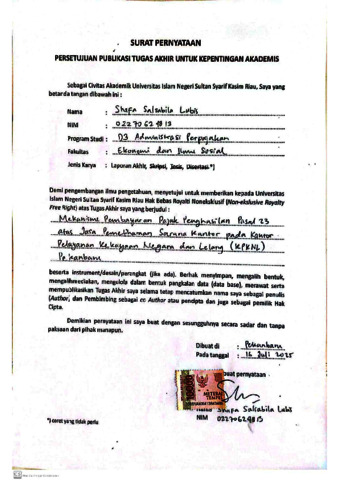 SURAT PERNYATAAN
PERSETUJUAN PUBLIKASI TUGAS AKHIR UNTUK KEPENTINGAN AKADEMIS
Sebagai Civitas Akademik Universitas Islam Negeri Sultan Syarif Kasim Riau, Saya yang
bertanda tangan dibawah ini :
Nama : Shafa Salsabila Lubis
NIM : 02270624813
Program Studi : D3 Administrasi Perpajakan
Fakultas : Ekonomi dan Ilmu Sosial
Jenis Karya : Laporan Akhir, Skripsi, Tesis, Disertasi *)
Demi pengembangan ilmu pengetahuan, menyetujui untuk memberikan kepada Universitas
Islam Negeri Sultan Syarif Kasim Riau Hak Bebas Royalti Nonekslusif (Non-ekslusive Royalty
Free Right) atas Tugas Akhir saya yang berjudul :
Mekanisme Pembayaran Pajak Penghasilan Pasal 23
atas Jasa Pemeliharaan Sarana Kantor pada Kantor
Pelayanan Kekayaan Negara dan Lelang (KPKNL)
Pekanbaru
beserta instrument/desain/perangkat (jika ada). Berhak menyimpan, mengalih bentuk,
mengalihmediakan, mengelola dalam bentuk pangkalan data (data base), merawat serta
mempublikasikan Tugas Akhir saya selama tetap mencantumkan nama saya sebagai penulis
(Author) dan Pembimbing sebagai co Author atau pencipta dan juga sebagai pemilik Hak
Cipta.
Demikian pernyataan ini saya buat dengan sesungguhnya secara sadar dan tanpa
paksaan dari pihak manapun.
Dibuat di : Pekanbaru
Pada tanggal : 16 Juli 2025
buat pernyataan
METERAI
TEMPEL
Nama Shafa Salsabila Lubis
NIM 02270624813
*) coret yang tidak perlu